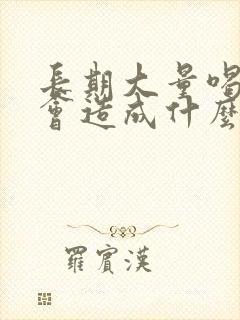 長期大量喝
會造成什麼
羅賓漢